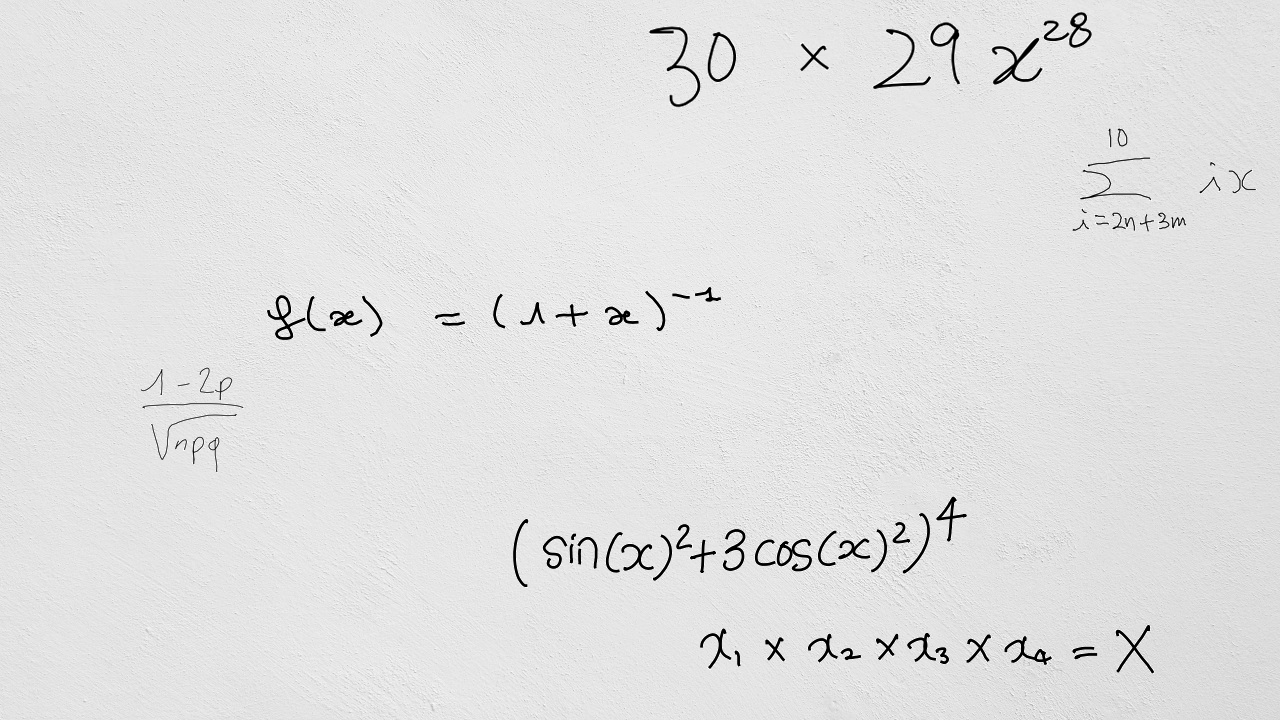 30 × 29x²⁸
∑_{i=2n+3m}^{10} ix
f(x) = (1+x)⁻¹
\frac{1-2p}{\sqrt{npq}}
(sin(x)²+3cos(x)²)⁴
x₁ × x₂ × x₃ × x₄ = X